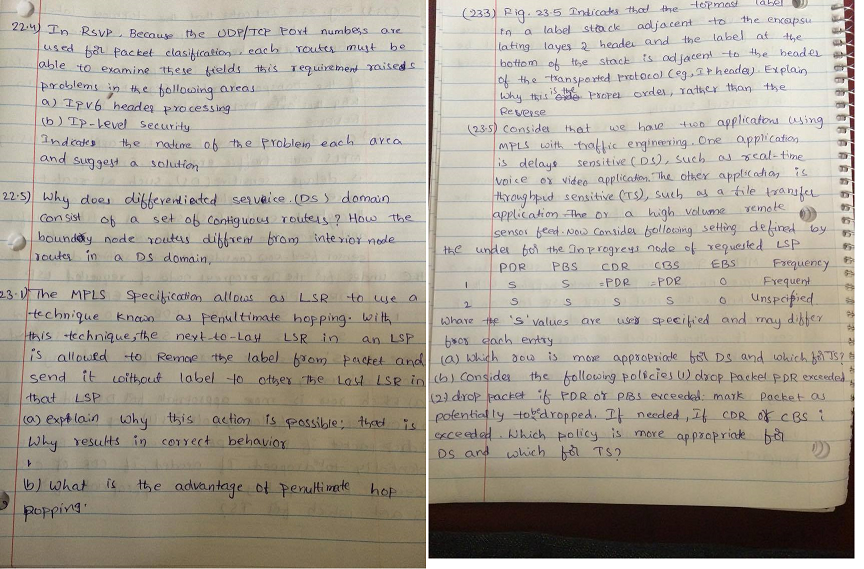 22.4) In RSVP. Because the UDP/TCP Port numbers are
used for packet clasification, each router must be
able to examine these fields this requirement raiseds
problems in the following areas
a) IPV6 header processing
(b) IP-Level security
Indicates the nature of the problem each area
and suggest a solution
22.5) Why does differentieded servoice.(DS) domain
consist of a set of contiguous routers? How the
boundary node routers diffrent from interior node
router in a DS domain,
23.1) The MPLS Specification allows as LSR to use a
technique known as penultimate hopping. With
this technique, the next-to-Last LSR in an LSP
is allowed to Remove the label from packet and
send it without label to other the Last LSR in
that LSP
(a) explain why this action is possible; that is
Why results in correct behavior
(b) What is the advantage of penultimate hop
popping.
(233) Fig. 23.5 Indicates that the topmost label
in a label stack adjacent to the encapsu
lating layer 2 header and the label at the
bottom of the stack is adjacent to the header
of the transported protocol (eg, IP header). Explain
Why this is the proper order, rather than the
Reverse
(23.5) Consider that we have two applications using
MPLS with traffic engineering. One application
is delays sensitive (DS), such as real-time
voice or video application. The other application is
throughput sensitive (TS), such as a file transfer
application The or a high volume remote
sensor feed. Now consider following setting defined by
the under for the Inprogress node of requested LSP
PDR PBS CDR CBS EBS Frequency
1 S S =PDR =PDR 0 Frequent
2 S S S S 0 Unspecified
Whare the 'S' values are user specified and may differ
for each entry
(a) Which row is more appropriate for DS and which for TS?
(b) Consider the following policies (1) drop packet PDR exceeded
(2) drop packet if PDR or PBS exceeded. mark packet as
potentially to be dropped. If needed, If CDR or CBS i
exceeded. Which policy is more appropriate for
DS and which for TS?